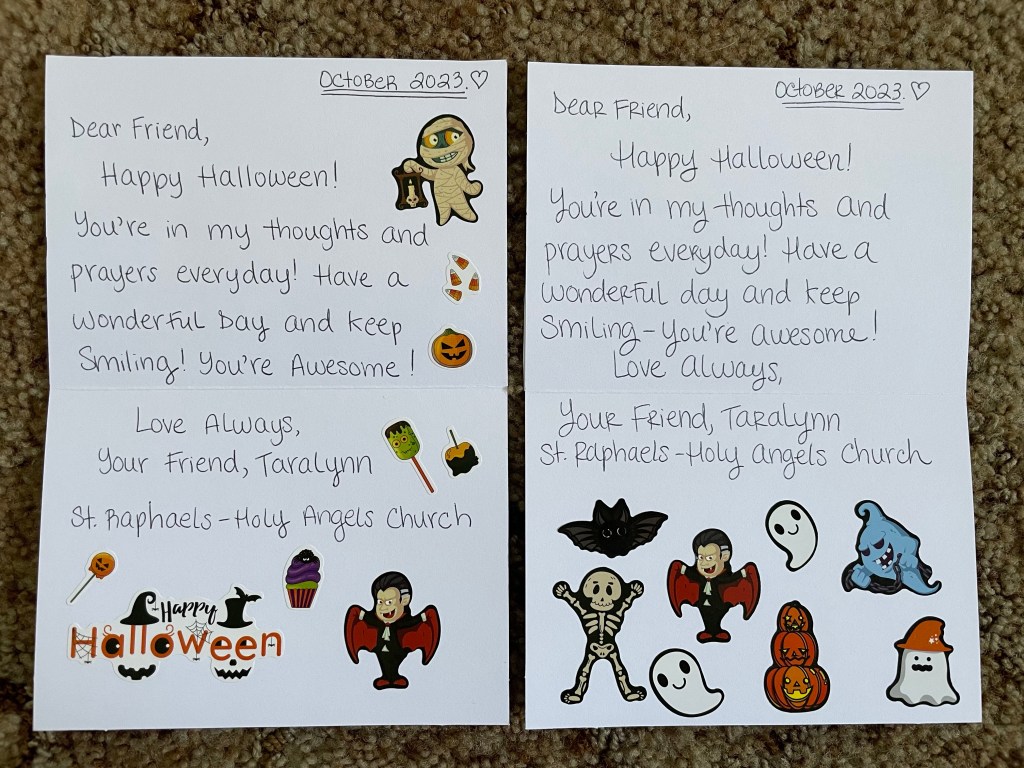 October 2023.♡
Dear Friend,
Happy Halloween!
You're in my thoughts and
prayers everyday! Have a
wonderful Day and keep
Smiling! You're Awesome!
Love Always,
Your Friend, Taralynn
St. Raphaels - Holy Angels Church
Happy
Halloween
October 2023.♡
Dear Friend,
Happy Halloween!
You're in my thoughts and
prayers everyday! Have a
wonderful day and keep
Smiling - You're awesome!
Love Always,
Your Friend, Taralynn
St. Raphaels - Holy Angels Church